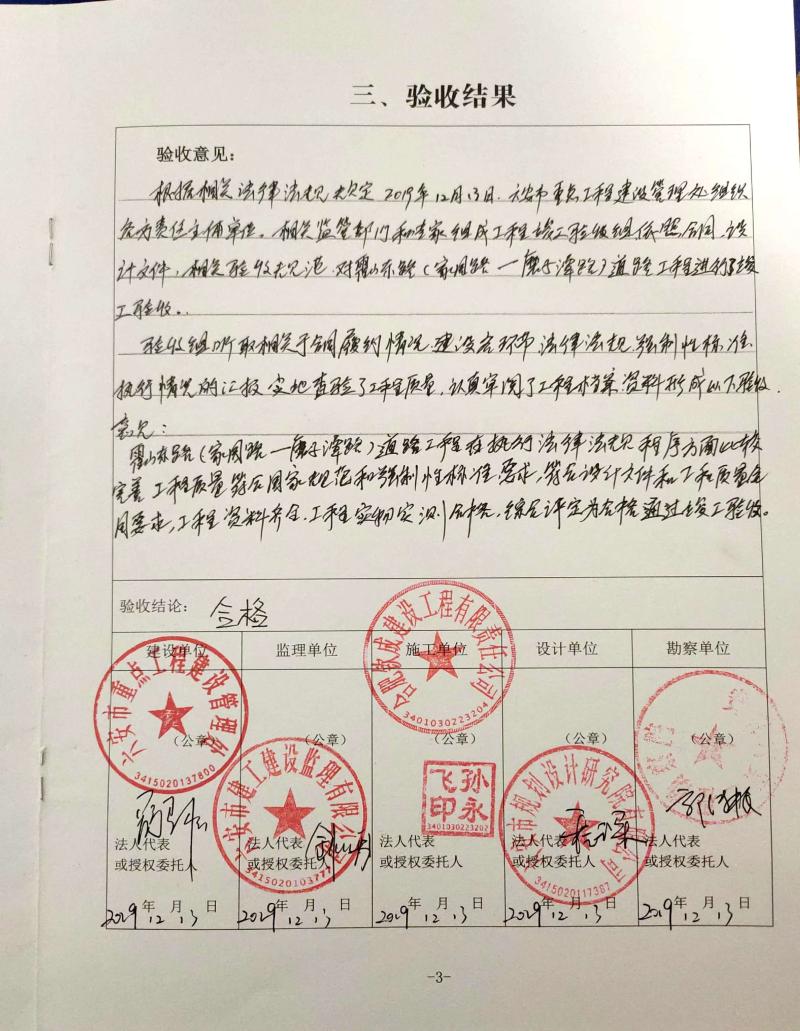 三、验收结果
验收意见：
根据相关法律法规规定2019年12月13日，六安市重点工程建设管理处组织
各方责任主体单位。相关监管部门和专家组成工程竣工验收组依照合同、设
计文件，相关验收规范，对霍山东路（家园路一磨子潭路）道路工程进行了竣
工验收。
验收组听取相关于合同履约情况、建设各环节法律法规、强制性标准
执行情况的汇报，实地查验了工程质量，认真审阅了工程档案资料形成以下验收
意见：
霍山东路（家园路一磨子潭路）道路工程在执行法律法规程序方面比较
完善，工程质量符合国家规范和强制性标准要求，符合设计文件和工程质量合
同要求，工程资料齐全，工程实物实测合格，综合评定为合格通过竣工验收。
验收结论： 合格
建设单位 监理单位 施工单位 设计单位 勘察单位
六安市重点工程建设管理处
3415020137800
六安市建工建设监理有限公司
3415020103777
合肥敬成建设工程有限责任公司
3401030223204
孙永飞印
3401030223202
市规划设计研究院有限公司
3415020117387
（公章） （公章） （公章） （公章） （公章）
法人代表 法人代表 法人代表 法人代表 法人代表
或授权委托人 或授权委托人 或授权委托人 或授权委托人 或授权委托人
2019年12月13日 2019年12月13日 2019年12月13日 2019年12月13日 2019年12月13日
-3-